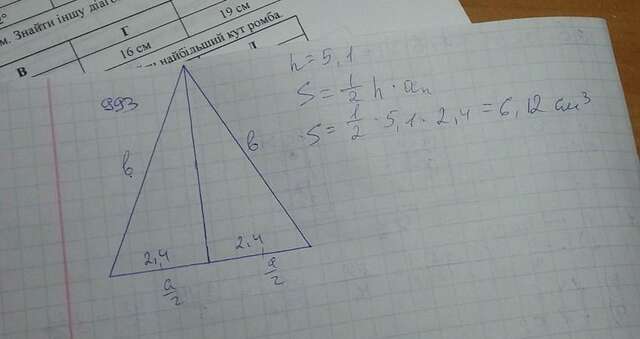 2°
м. Знайти іншу діаго
Г
19 см
В
16 см
найбільший кут ромба.
993
h = 5,1
S = 1/2 h · aₙ
S = 1/2 · 5,1 · 2,4 = 6,12 см³
в
в
2,4
2,4
a/2
a/2